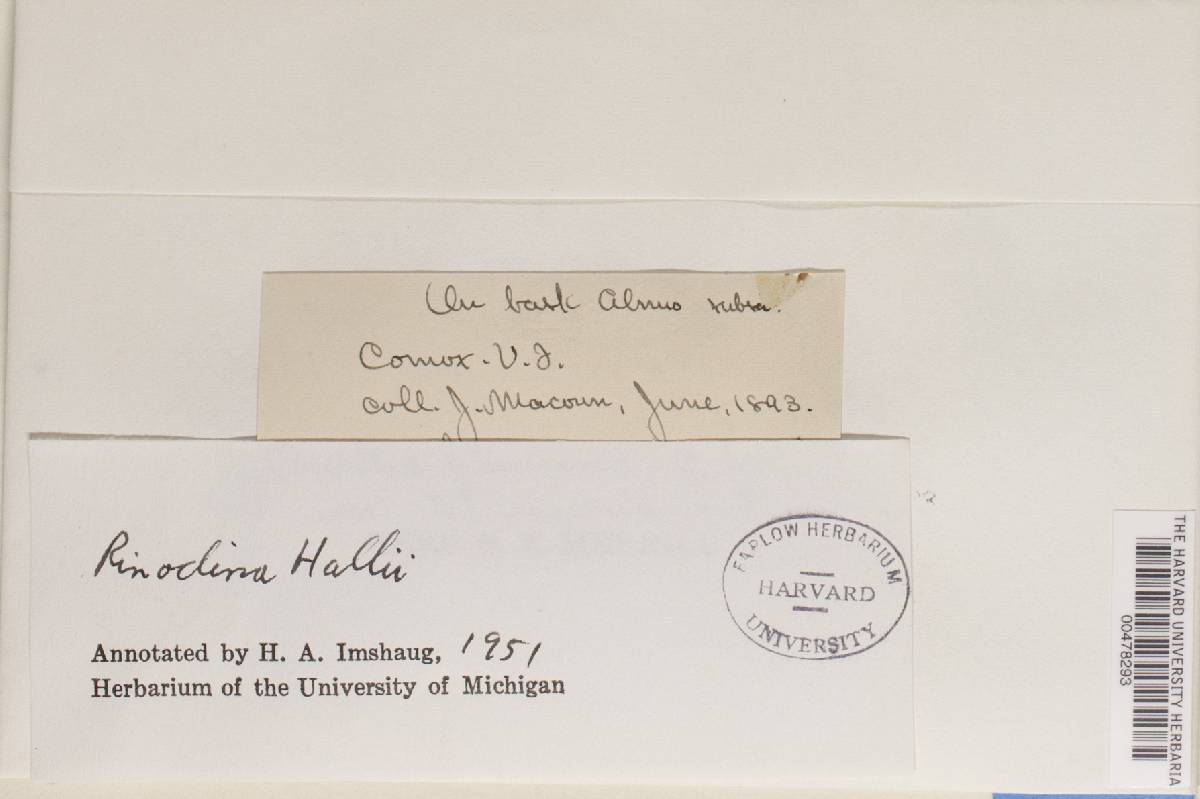 On bark Alnus rubra.
Comox. V.I.
coll. J. Macoun, June, 1893.
Rinodina Hallii
Annotated by H. A. Imshaug, 1951
Herbarium of the University of Michigan
FARLOW HERBARIUM
HARVARD
UNIVERSITY
THE HARVARD UNIVERSITY HERBARIA
00478293